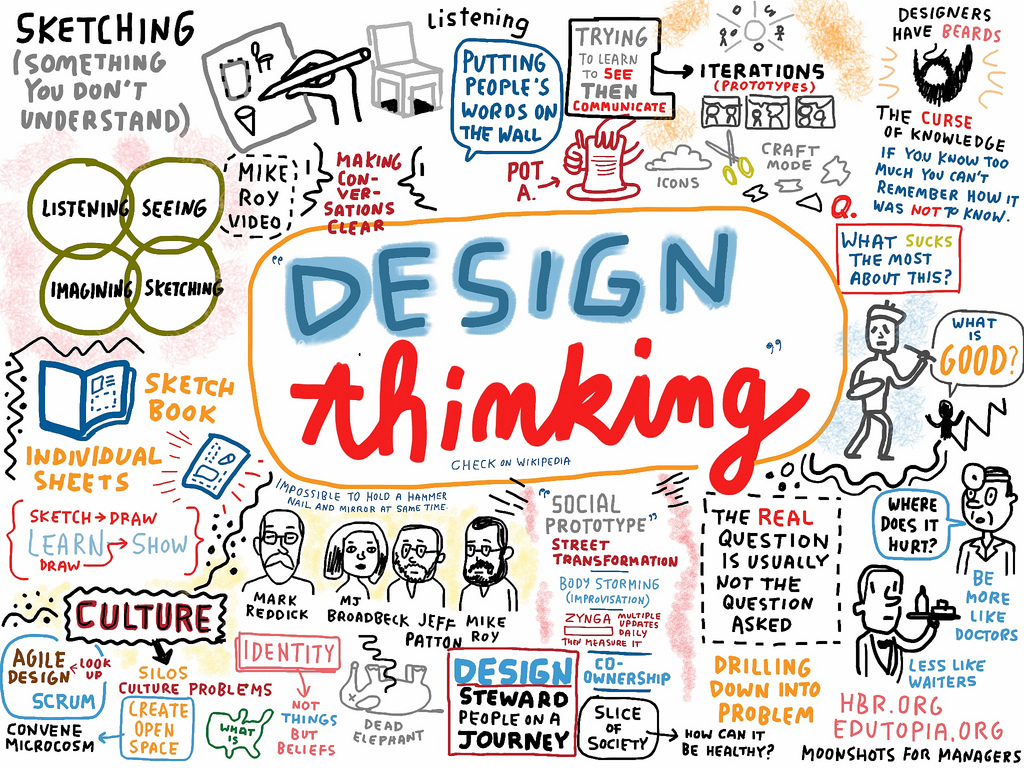 SKETCHING
(SOMETHING
YOU DON'T
UNDERSTAND)
Listening
PUTTING
PEOPLE'S
WORDS ON
THE WALL
TRYING
TO LEARN
TO SEE
THEN
COMMUNICATE
ITERATIONS
(PROTOTYPES)
DESIGNERS
HAVE BEARDS
THE CURSE
OF KNOWLEDGE
IF YOU KNOW TOO
MUCH YOU CAN'T
REMEMBER HOW IT
WAS NOT TO KNOW.
LISTENING
SEEING
IMAGINING
SKETCHING
MIKE
ROY
VIDEO
MAKING
CON-
VER-
SATIONS
CLEAR
POT
A.
ICONS
CRAFT
MODE
Q.
WHAT SUCKS
THE MOST
ABOUT THIS?
"DESIGN
thinking"
CHECK ON WIKIPEDIA
WHAT
IS
GOOD?
SKETCH
BOOK
INDIVIDUAL
SHEETS
SKETCH → DRAW
LEARN → SHOW
DRAW
IMPOSSIBLE TO HOLD A HAMMER
NAIL AND MIRROR AT SAME TIME.
MARK
REDDICK
MJ
BROADBECK
JEFF
PATTON
MIKE
ROY
"SOCIAL
PROTOTYPE"
STREET
TRANSFORMATION
BODY STORMING
(IMPROVISATION)
ZYNGA
MULTIPLE
UPDATES
DAILY
THEN MEASURE IT
CO-
OWNERSHIP
THE REAL
QUESTION
IS USUALLY
NOT THE
QUESTION
ASKED
WHERE
DOES IT
HURT?
BE
MORE
LIKE
DOCTORS
LESS LIKE
WAITERS
CULTURE
AGILE
DESIGN
LOOK
UP
SCRUM
CONVENE
MICROCOSM
SILOS
CULTURE PROBLEMS
CREATE
OPEN
SPACE
WHAT
IS
IDENTITY
NOT
THINGS
BUT
BELIEFS
DEAD
ELEPHANT
DESIGN
STEWARD
PEOPLE ON A
JOURNEY
SLICE
OF
SOCIETY
HOW CAN IT
BE HEALTHY?
DRILLING
DOWN INTO
PROBLEM
HBR.ORG
EDUTOPIA.ORG
MOONSHOTS FOR MANAGERS